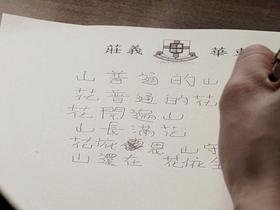 莊義 華
山普通的山
花普通的花
花開遍山
山長滿花
花 山守
山還在 花依